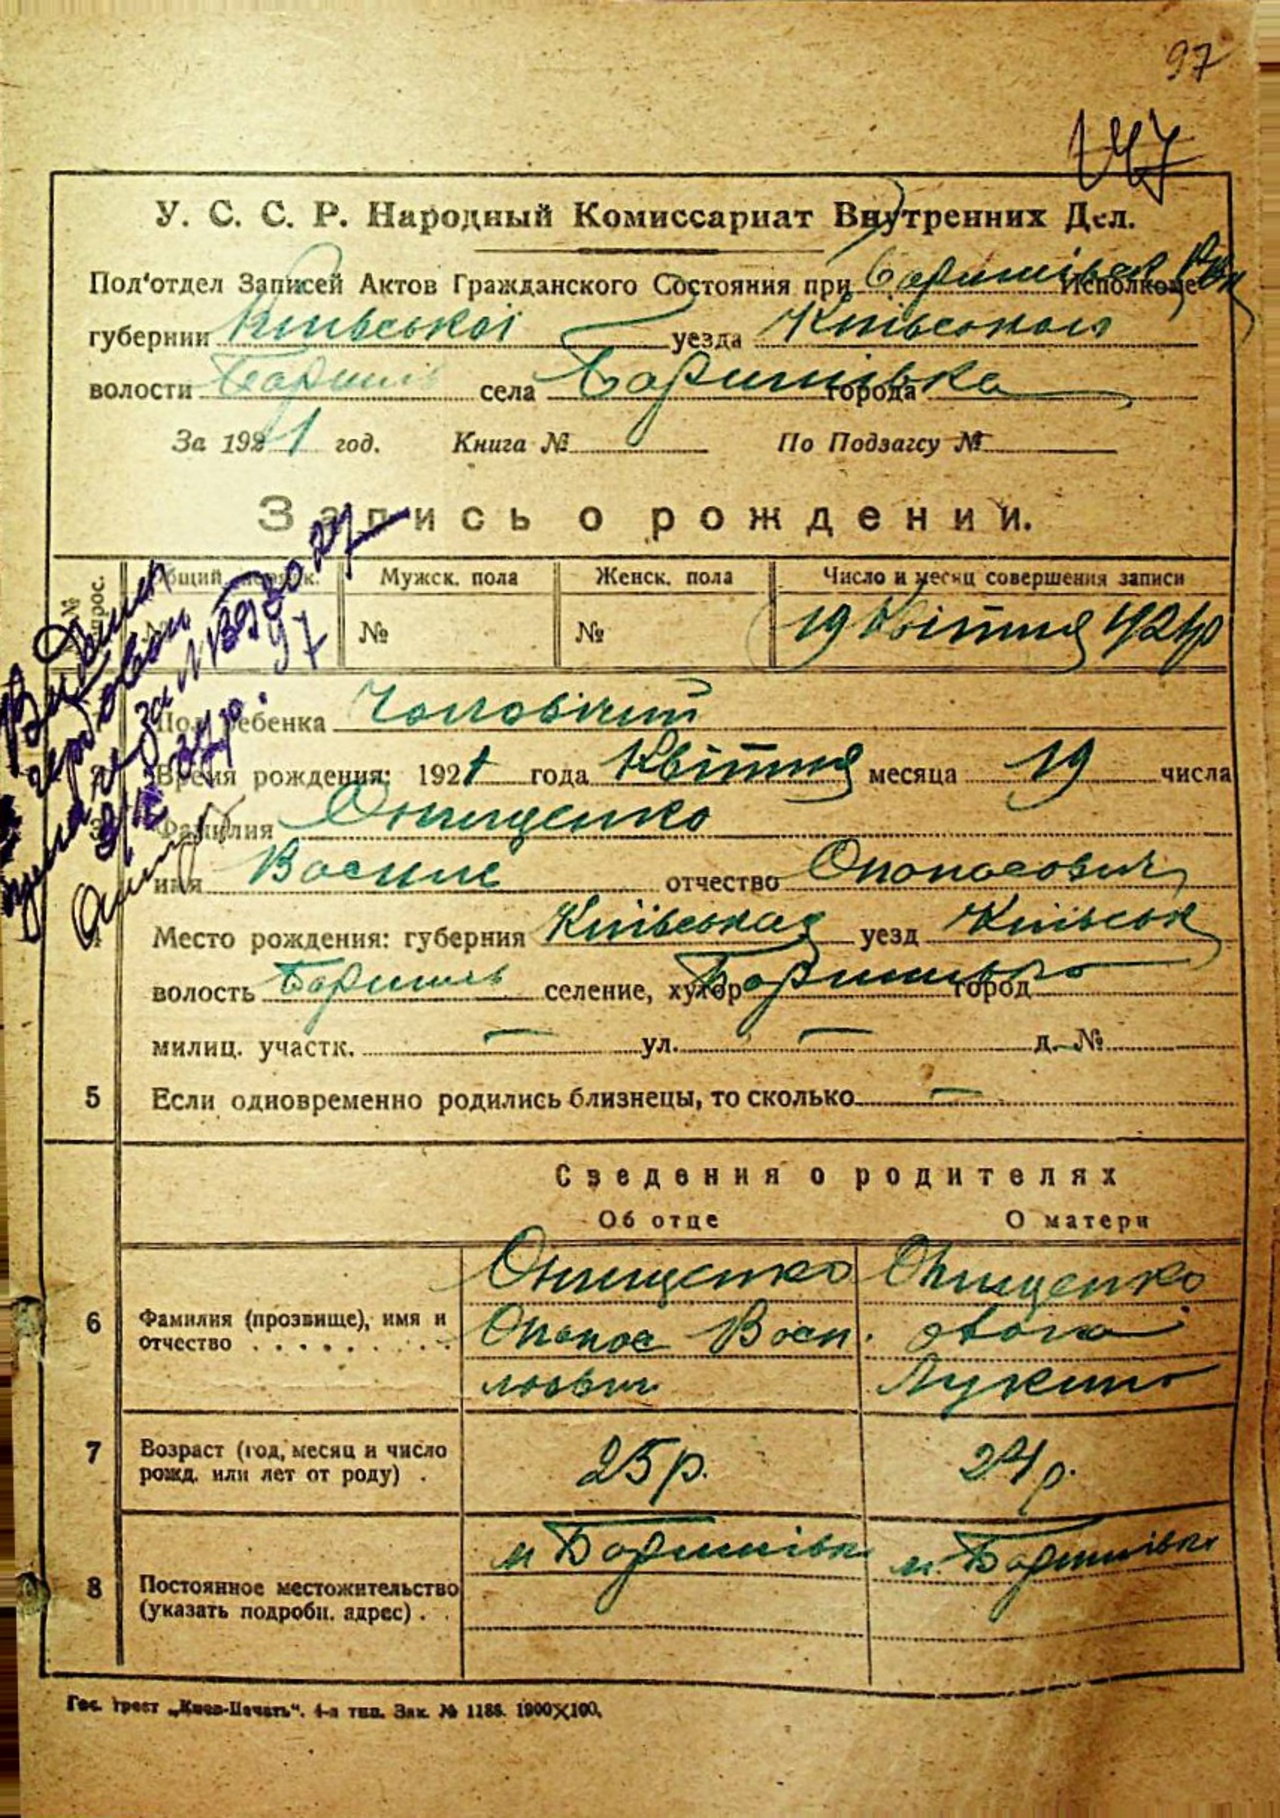 97
147
У. С. С. Р. Народный Комиссариат Внутренних Дел.
Под'отдел Записей Актов Гражданского Состояния при Баришівськ Исполкоме
губернии Київської уезда Київського
волости Баришів села Баришівка города
За 1921 год. Книга № По Подзагсу №
Запись о рождении.
№ Общий Мужск. пола Женск. пола Число и месяц совершения записи
№ № № 19 Квітня 1921 р
Пол ребенка Чоловічий
2 Время рождения: 1921 года Квітня месяца 19 числа
3 Фамилия Онищенко
имя Василь отчество Опанасович
4 Место рождения: губерния Київська уезд Київськ
волость Баришів селение, хутор Баришівка город
милиц. участк. — ул. — д. №
5 Если одновременно родились близнецы, то сколько —
Сведения о родителях
Об отце О матери
6 Фамилия (прозвище), имя и отчество
Онищенко Опанас Васи льович
Онищенко Лукина
7 Возраст (год, месяц и число рожд. или лет от роду) .
25 р. 24 р.
8 Постоянное местожительство (указать подробн. адрес) . .
м Баришівк м. Баришівка
Гос. трест „Киев-Печать“. 4-я тип. Зак. № 1186. 1900×100.